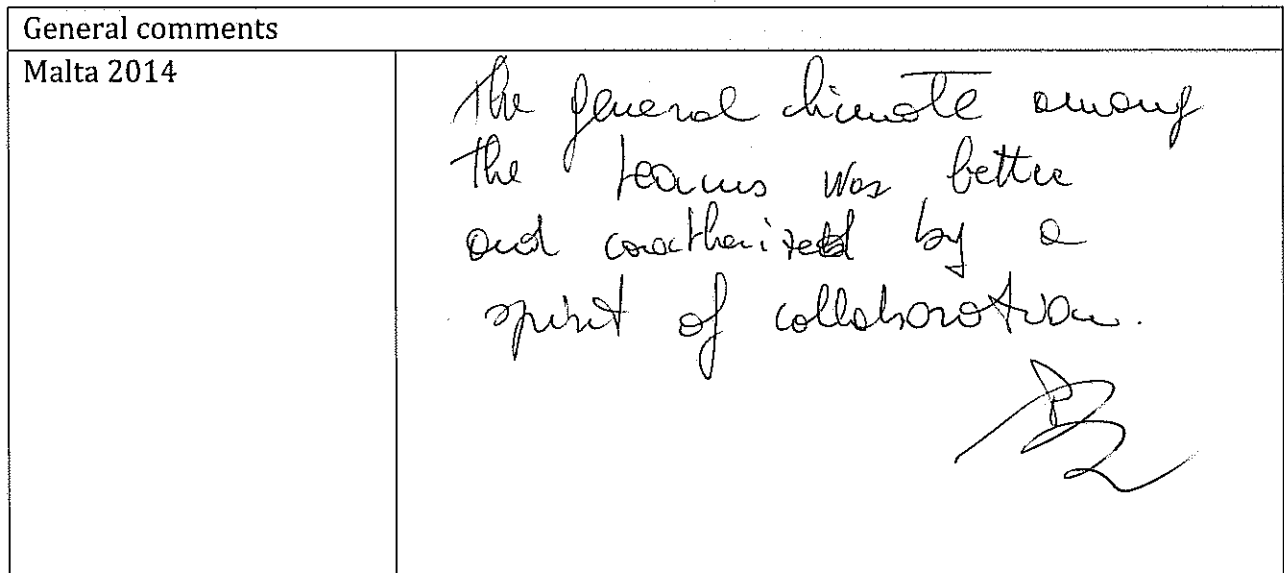 General comments
Malta 2014
The general climate among
the teams was better
and caractherized by a
spirit of collaboration.